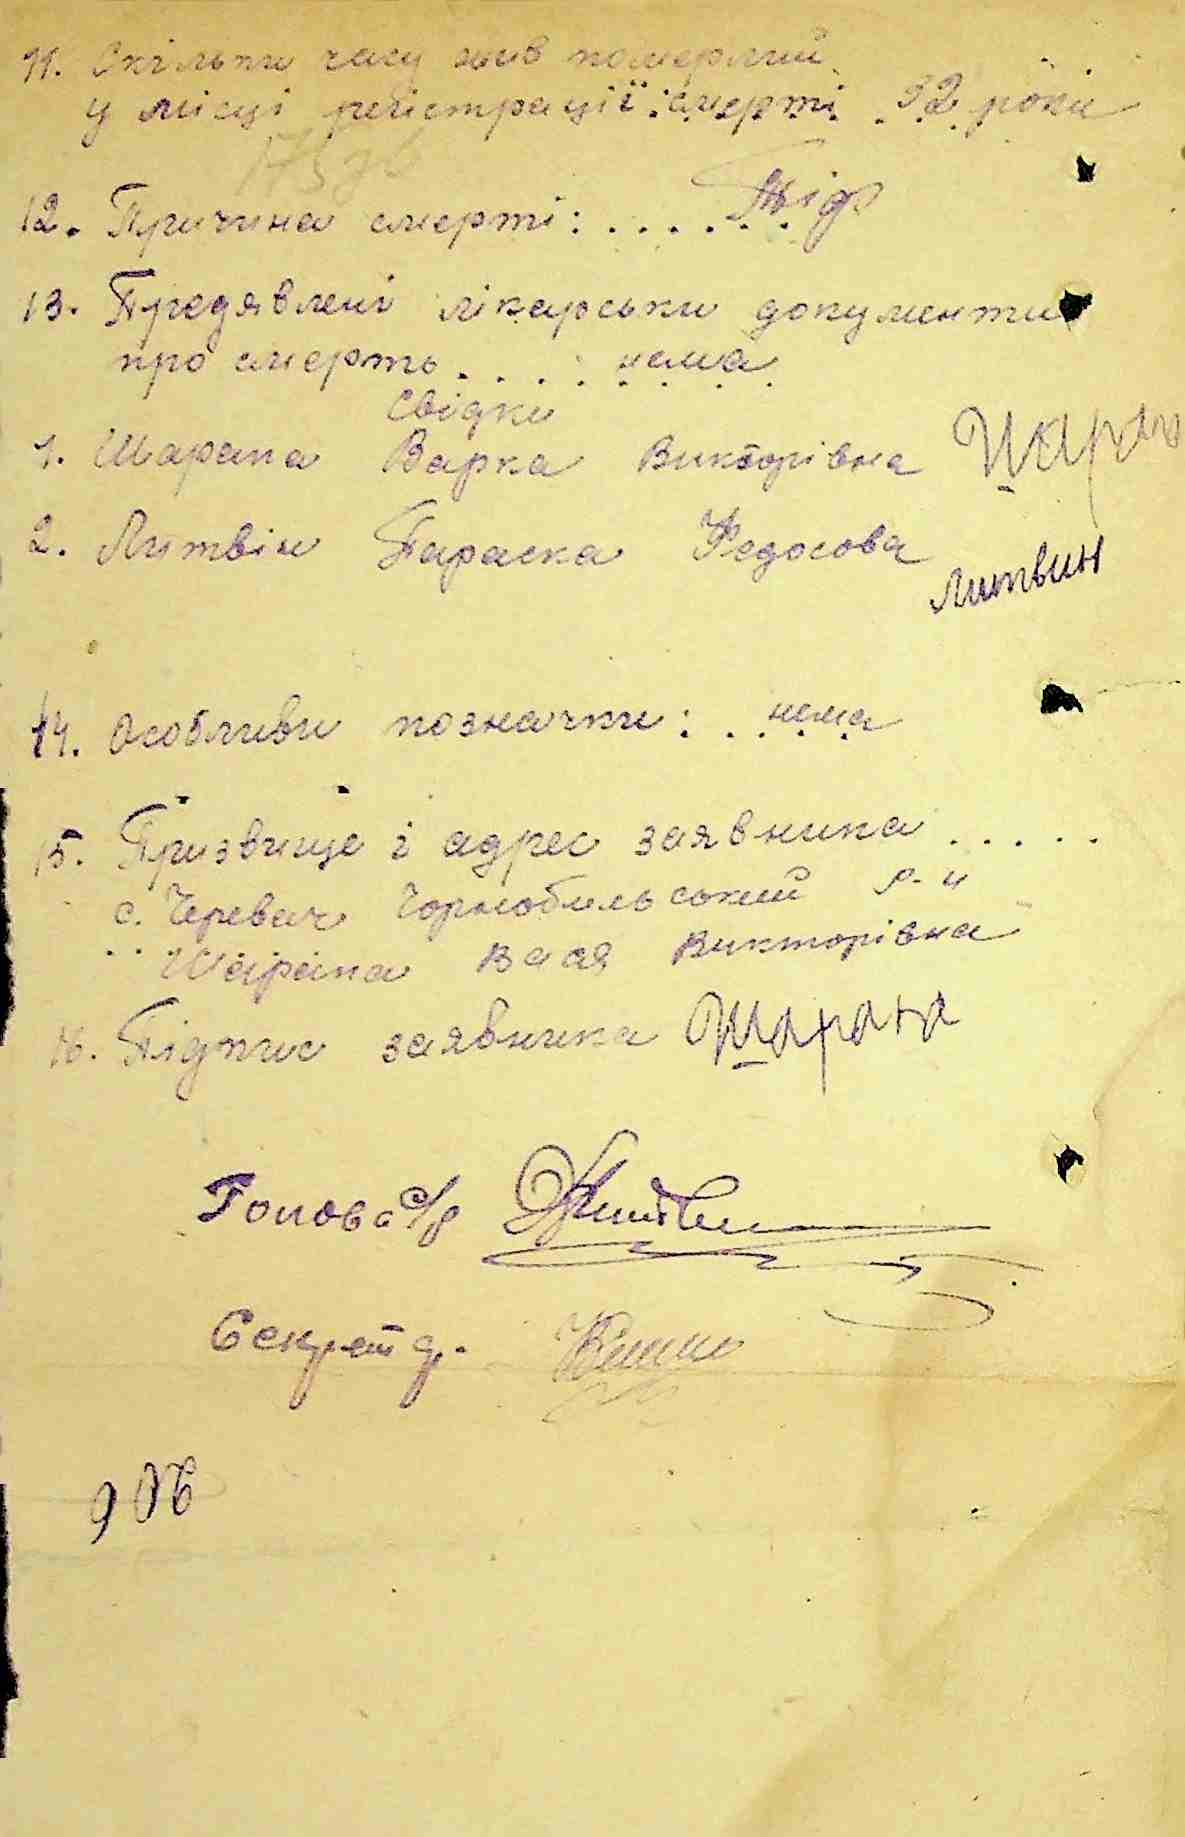 11. Скільки часу жив померлий
у місці реїстрації смерті . . 32 роки
12. Причина смерті: . . . . . . Тіф
13. Предявлені лікарськи документи
про смерть . . . . нема
Свідки
1. Шарапа Варка Викторівна Шарап
2. Литвін Параска Федосова
Литвин
14. Особливи позначки: . нема
15. Призвище і адрес заявника . . . . .
с. Черевач Чорнобильський р-н
Шарапа Викторівна
16. Підпис заявника Шарапа
Голова с/р
Секретар.
906